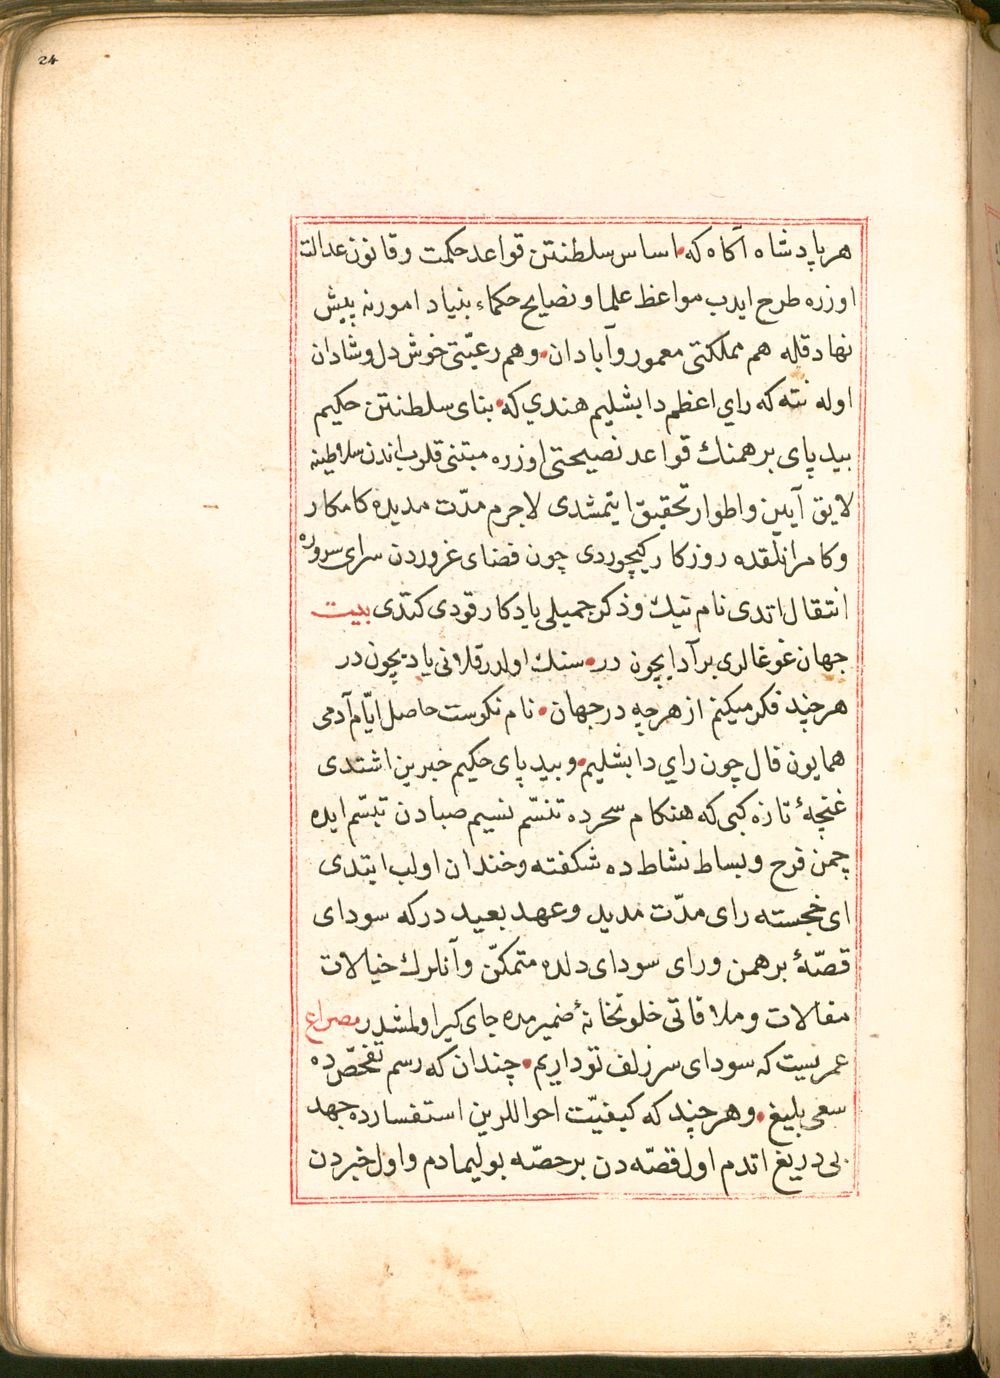 24
هر پادشاه آگاه که اساس سلطنتن قواعد حکمت و قانون عدالت
اوزره طرح ایدب مواعظ علما و نصایح حکماء بنیاد امورنه پیش
نهاد قله هم مملکتی معمور و آبادان و هم رعیّتی خوش دل و شادان
اوله نته که رای اعظم دابشلیم هندی که بنای سلطنتن حکیم
بیدپای برهمنك قواعد نصیحتی اوزره مبتنی قلوب اندن سلاطینه
لایق آیین و اطوار تحقیق ایتمشدی لاجرم مدّت مدیده کامکار
و کامرانلقده روزکار کیچوردی چون فضای غروردن سرای سروره
انتقال اتدی نام نیك و ذکر جمیلی یادکار قودی کتدی بیت
جهان غوغالری بر آد ایچون در سنك اولدر قلانی یاد ایچون در
هر چند فکر میکنم از هر چه در جهان نام نکوست حاصل ایّام آدمی
همایون فال چون رای دابشلیم و بیدپای حکیم خبرین اشتدی
غنچهٔ تازه کبی که هنکام سحرده تنسّم نسیم صبادن تبسّم ایده
چمن فرح و بساط نشاطده شکفته و خندان اولب ایتدی
ای خجسته رای مدّت مدید و عهد بعید درکه سودای
قصّهٔ برهمن و رای سودای دلده متمکّن و آنلرك خیالات
مقالات و ملاقاتی خلوتخانهٔ ضمیرمده جای کیر اولمشدر مصراع
عمریست که سودای سر زلف تو داریم چندان که رسم تفحّص ده
سعی بلیغ و هر چند که کیفیّت احواللرین استفسارده جهد
بی دریغ اتدم اول قصّه دن بر حصّه بولیمادم و اول خبردن